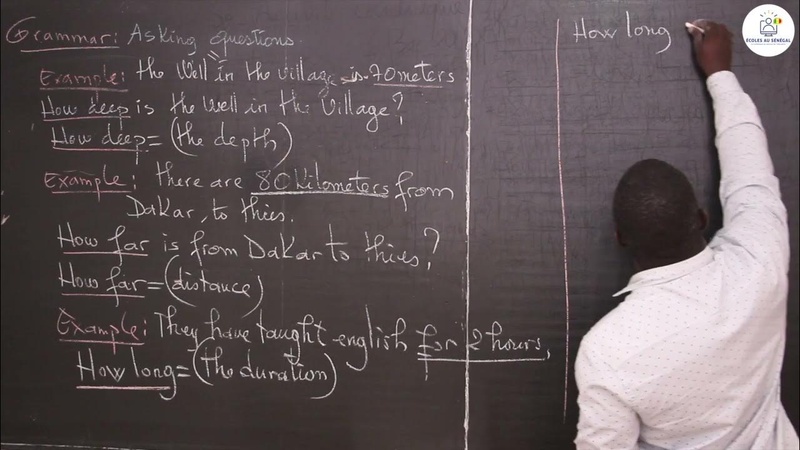 Grammar: Asking questions.
Example: the well in the village is 70 meters
How deep is the well in the village?
How deep = (the depth)
Example: there are 80 kilometers from
Dakar, to thies.
How far is from Dakar to thies?
How far = (distance)
Example: They have taught english for 2 hours.
How long = (the duration)
How long
ÉCOLES AU SÉNÉGAL